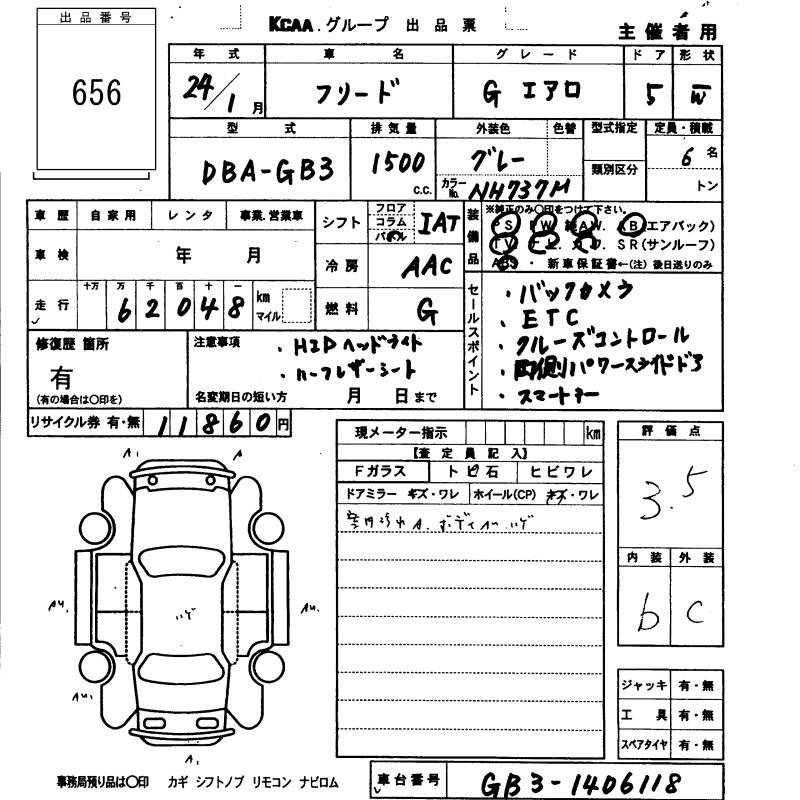 出品番号
656
KCAA.グループ 出品票
主催者用
年式 車名 グレード ドア 形状
24/1月 フリード G エアロ 5 W
型式 排気量 外装色 色替 型式指定 定員・積載
DBA-GB3 1500 c.c. グレー 類別区分 6名
カラーNo. NH737M トン
車歴 自家用 レンタ 事業.営業車
シフト フロア コラム IAT
装備品 ※純正のみ〇印をつけて下さい。
PS AW. (エアバック)
TV SR(サンルーフ)
ABS ・ 新車保証書←(注) 後日送りのみ
車検 年 月
冷房 AAC
走行 十万 万 千 百 十 一
62048 km マイル
燃料 G
セールスポイント
・バックカメラ
・ETC
・クルーズコントロール
・両側パワースライドドア
・スマートキー
修復歴 箇所
有
(有の場合は〇印を)
注意事項
・HIDヘッドライト
・ハーフレザーシート
名変期日の短い方 月 日まで
リサイクル券 有・無 11860円
現メーター指示 km
【査定員記入】
Fガラス トビ石 ヒビワレ
ドアミラー キズ・ワレ ホイール(CP) キズ・ワレ
A. ボディ ハゲ
評価点
3.5
内装 外装
b C
A. A
AU. ハゲ AU.
AU.
A.
ジャッキ 有・無
工具 有・無
スペアタイヤ 有・無
事務局預り品は〇印 カギ シフトノブ リモコン ナビロム
車台番号 GB3-1406118